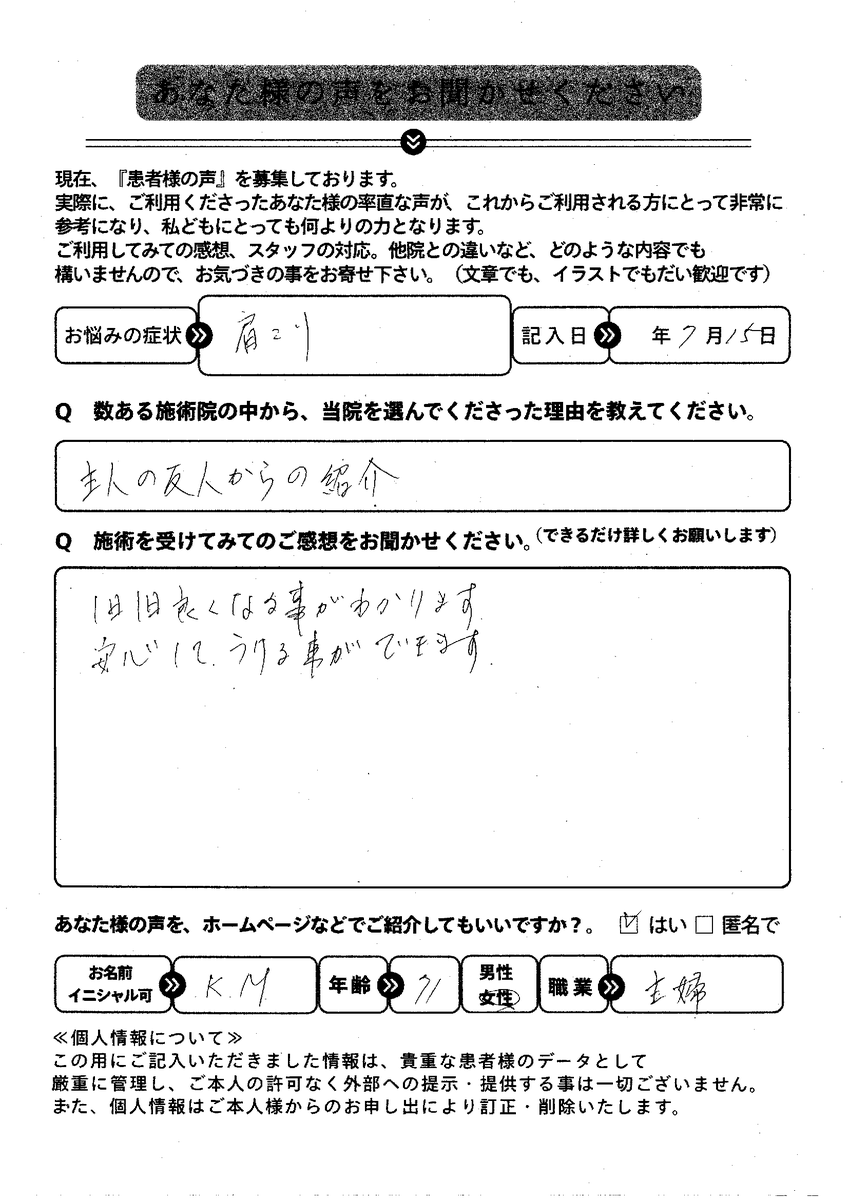 あなた様の声をお聞かせください
現在、『患者様の声』を募集しております。
実際に、ご利用くださったあなた様の率直な声が、これからご利用される方にとって非常に
参考になり、私どもにとっても何よりの力となります。
ご利用してみての感想、スタッフの対応。他院との違いなど、どのような内容でも
構いませんので、お気づきの事をお寄せ下さい。（文章でも、イラストでもだい歓迎です）
お悩みの症状 肩こり 記入日 年7月15日
Q 数ある施術院の中から、当院を選んでくださった理由を教えてください。
主人の友人からの紹介
Q 施術を受けてみてのご感想をお聞かせください。（できるだけ詳しくお願いします）
1日1日良くなる事がわかります
安心して、うける事ができます。
あなた様の声を、ホームページなどでご紹介してもいいですか？。 ☑ はい □ 匿名で
お名前 イニシャル可 K.M 年齢 71 男性 女性 職業 主婦
≪個人情報について≫
この用にご記入いただきました情報は、貴重な患者様のデータとして
厳重に管理し、ご本人の許可なく外部への提示・提供する事は一切ございません。
また、個人情報はご本人様からのお申し出により訂正・削除いたします。